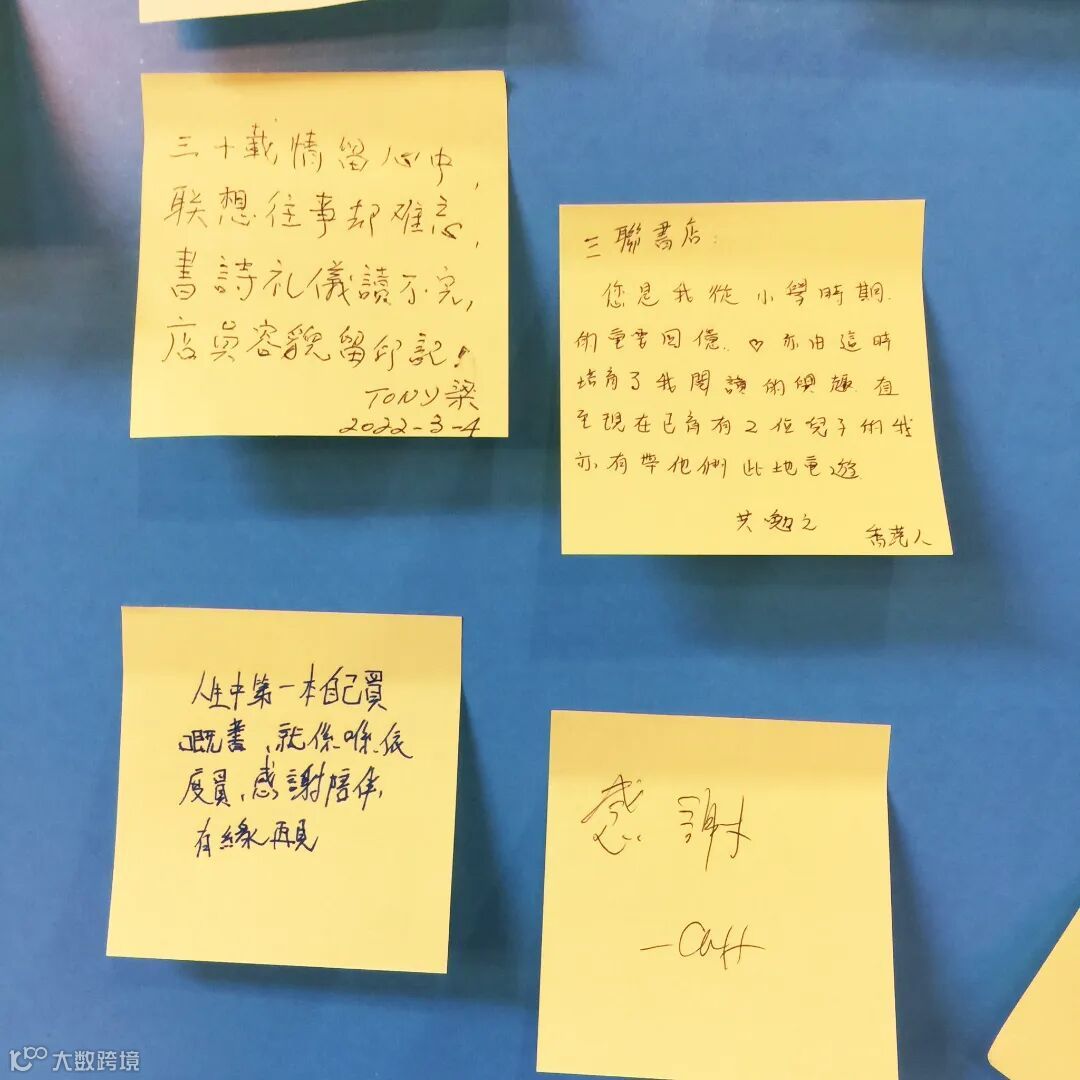 三十載情留心中，
联想往事却难忘，
書詩礼儀讀不完，
店員容貌留印記！
TONY梁
2022-3-4
三聯書店：
您是我從小學時期
的重要回億 ♡ 亦由這時
培育了我閱讀的興趣 直
至現在已育有2位兒子的我
亦有帶他們此地重遊
共勉之
香港人
人生中第一本自己買
嘅書、就係喺依
度買、感謝陪伴、
有緣再見
感謝
大数跨境